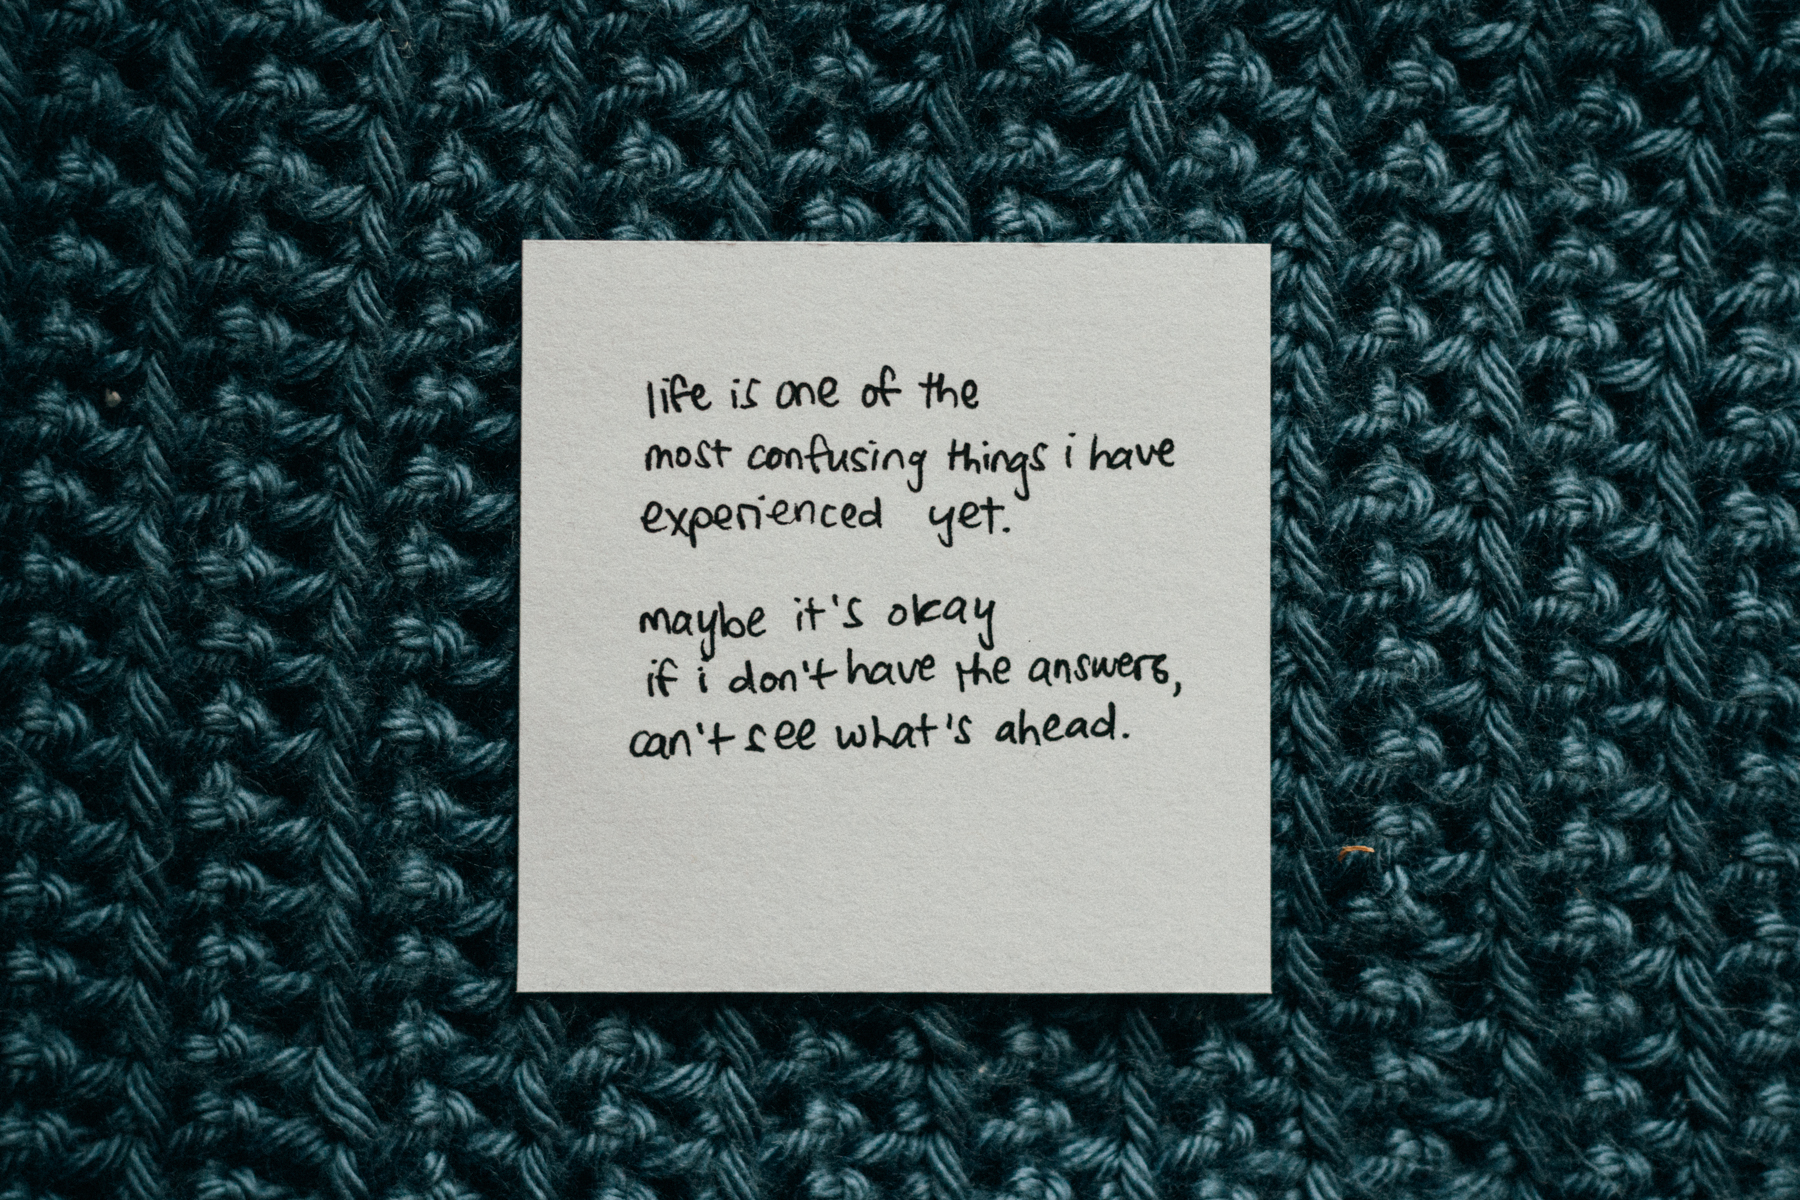 life is one of the
most confusing things i have
experienced yet.
maybe it's okay
if i don't have the answers,
can't see what's ahead.